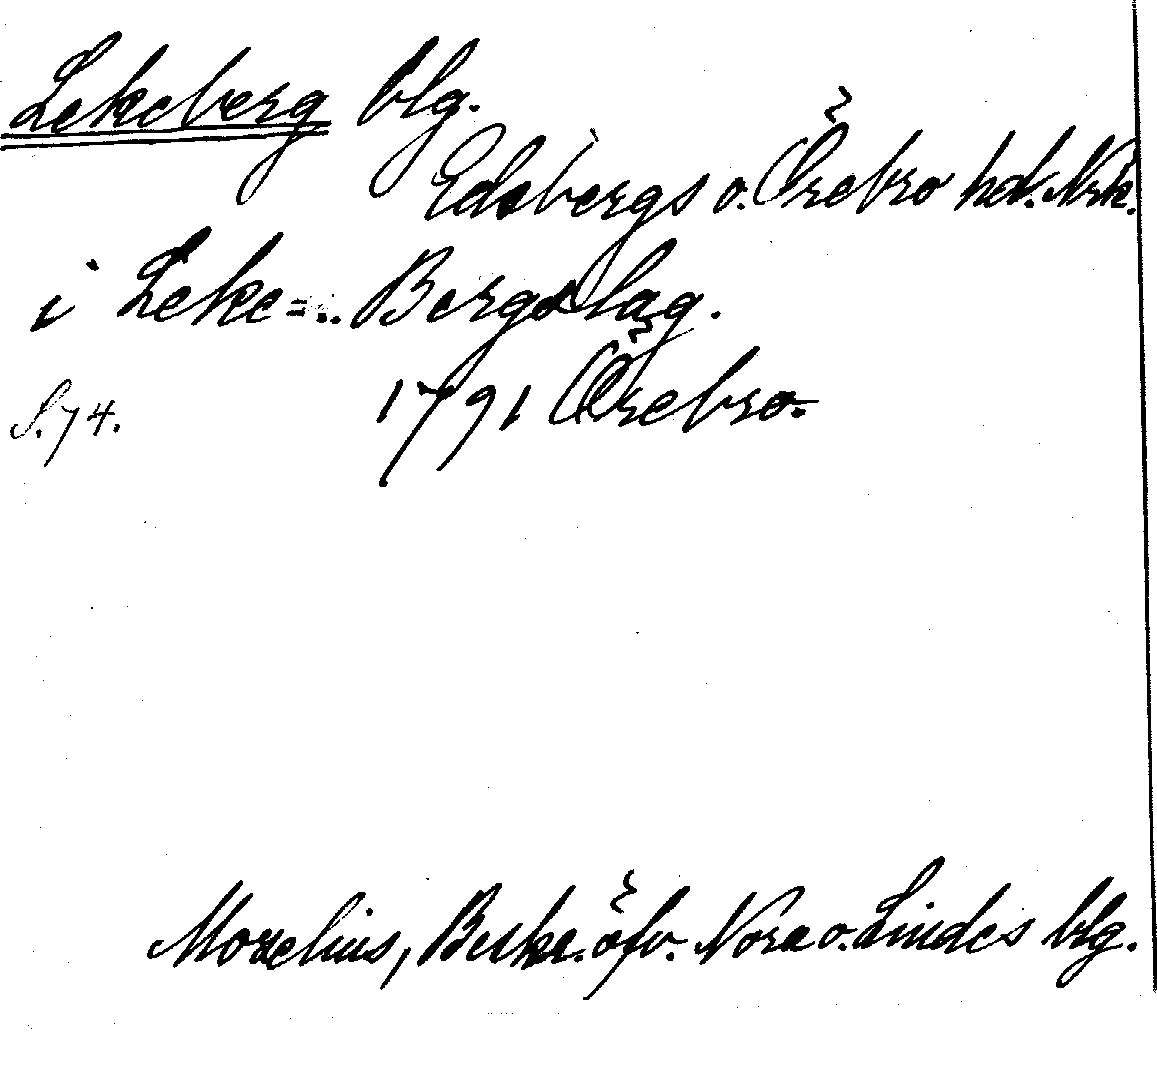 Lekeberg blg.
Edsbergs o. Örebro hd. Nrk.
i Leke=.. Bergslag.
S.74. 1791 Örebro.
Morelius, Beskr. öfv. Nora o. Lindes blg.